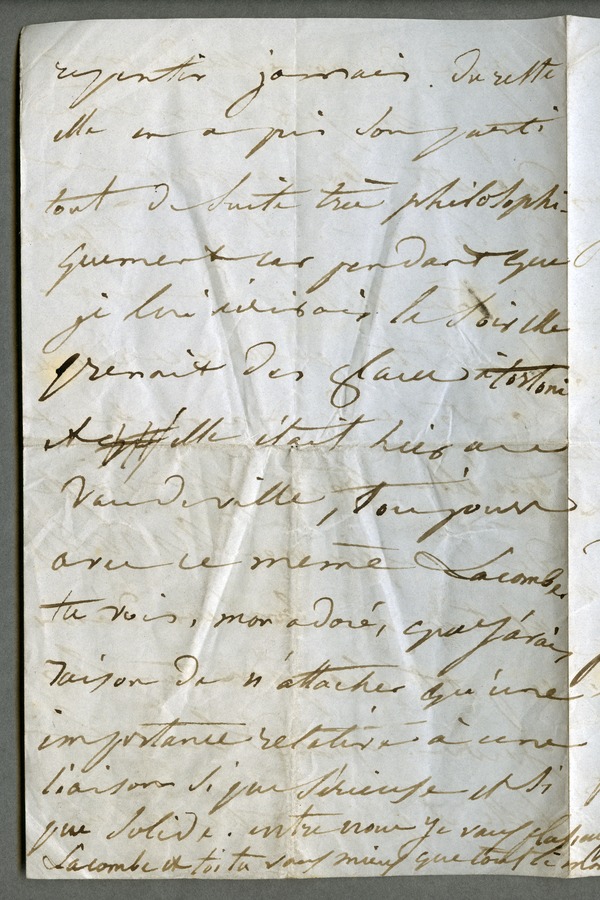 repentir jamais. Du reste
elle en a pris son parti
tout de suite très philosophi-
quement car pendant que
je lui écrivais le soir elle
prenait des glaces à Tortoni
et elle était hier au
Vaudeville, toujours
avec ce même Lacombe
tu vois, mon adoré, que j'avais
raison de n'attacher qu'une
importance relative à une
liaison si peu sérieuse et si
peu solide. entre nous je vous
Lacombe et toi tu vaux mieux que tout le